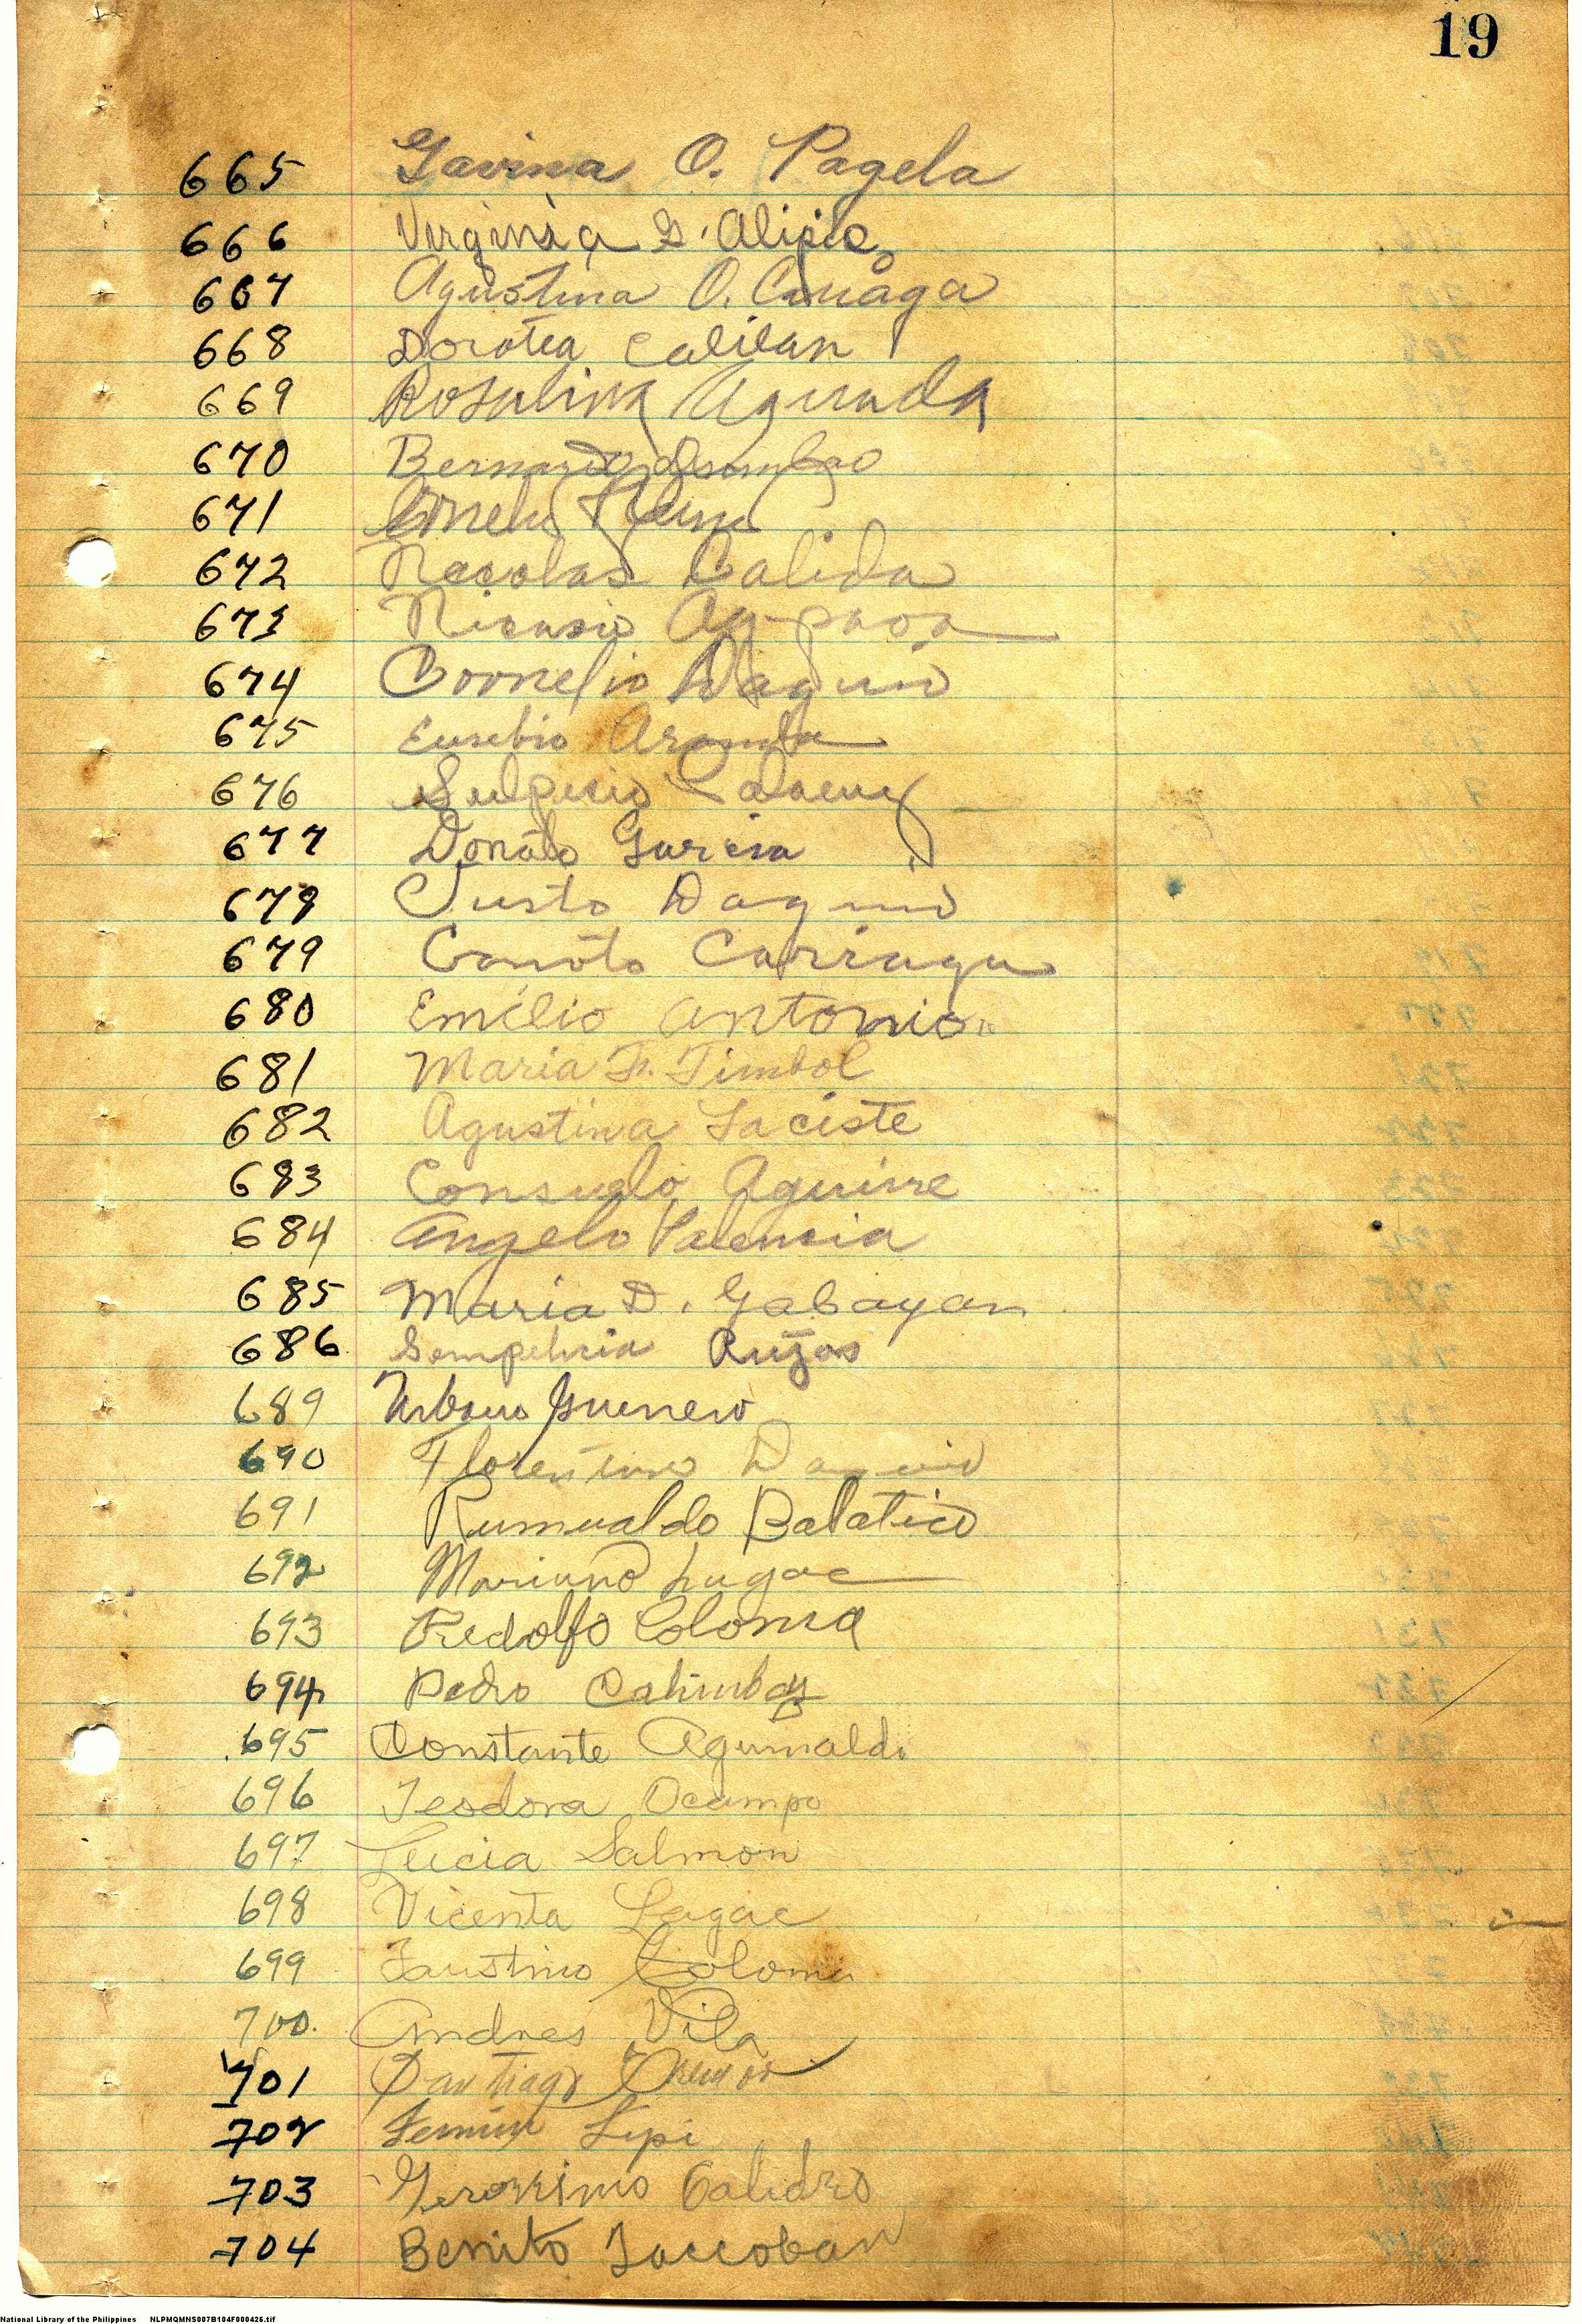 19
665 Gavina O. Pagela
666 Virginia G. Alipio
667 Agustina O. Cariaga
668 Dorotea Calilan
669 Rosalina Agunda
670 Bernardo
671
672 Necolas Calida
673 Nicasio Ag-paoa
674 Cornelio Daguio
675 Eusebio
676 Sulpicio
677 Donato Garcia
678 Justo Daguio
679 Canoto Carriaga
680 Emilio Antonio
681 Maria F. Timbol
682 Agustina Laciste
683 Consuelo Aguirre
684 Angelo Valencia
685 Maria D. Gabayan
686 Rúzos
689 Urbano Guerrero
690 Florentino Daguio
691 Rumualdo Balatico
692 Mariano Lugac
693 Fredolfo Coloma
694 Pedro Calimbas
695 Constante Aguinaldo
696 Teodora Ocampo
697 Lucia Salmon
698 Vicenta Lagac
699 Faustino Coloma
700. Andres Vila
701 Santiago
702 Fermin Lipi
703 Geronimo Calidro
704 Benito Taccoban
National Library of the Philippines NLPMQMNS007B104F000426.tif